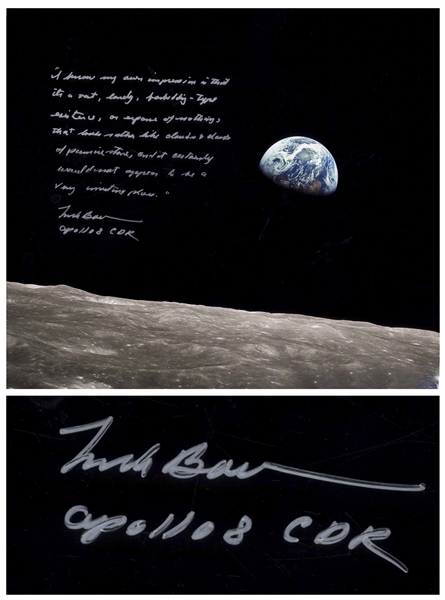 "I know my own impression is that
it's a vast, lonely, forbidding-type
existence, or expanse of nothing,
that looks rather like clouds & clouds
of pumice stone, and it certainly
would not appear to be a
very inviting place."
Frank Borman
Apollo 8 CDR
Frank Borman
Apollo 8 CDR